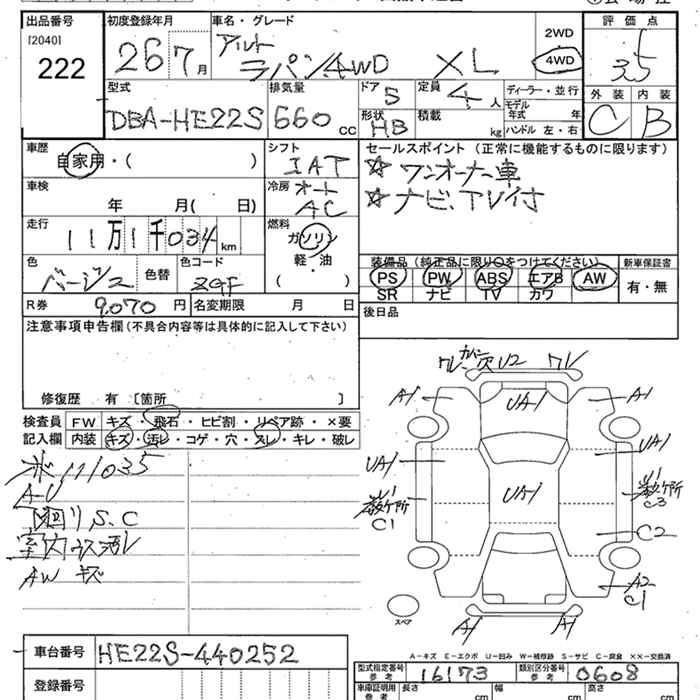 出品番号
[2040]
222
初度登録年月
26 7月
車名・グレード
アルト
ラパン4WD XL
2WD
4WD
評価点
3.5
外装 内装
C B
型式
DBA-HE22S
排気量
660 cc
ドア
5
定員
4人
形状
HB
積載
kg
ディーラー・並行
モデル
年式 年
ハンドル 左・右
車歴
自家用・( )
シフト
IAT
セールスポイント(正常に機能するものに限ります)
☆ ワンオーナー車
☆ ナビ、TV付
車検
年 月( 日)
冷房
オート
AC
走行
11万1千034 km
燃料
ガソリン
軽・油
( )
色
ベージュ
色替
色コード
ZGF
装備品(純正品に限り○をつけてください)
PS PW ABS エアB AW
SR ナビ TV カワ
新車保証書
有・無
R券
9,070円
名変期限 月 日
後日品
注意事項申告欄(不具合内容等は具体的に記入して下さい)
修復歴 有 〔箇所 〕
検査員
記入欄
FW キズ・飛石・ヒビ割・リペア跡・×要
内装 キズ・汚レ・コゲ・穴・スレ・キレ・破レ
111035
A-U
下廻りS.C
室内ウス汚レ
AW キズ
U2 ワレ
A1 UA1 A1
UA1 UA1
UA1
C1
C3
C2
A2
C1
A1 A1
スペア
A-キズ E-エクボ U-凹み W-補修跡 S-サビ C-腐食 ××-交換済
車台番号
HE22S-440252
登録番号
型式指定番号
参考
16173
類別区分番号
参考
0608
車庫証明用
参考
長さ cm
幅 cm
高さ cm